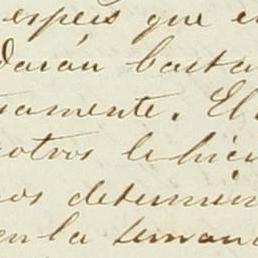 espeis que e
darán basta
samente. El
sotros le hici
os determin
en la seman